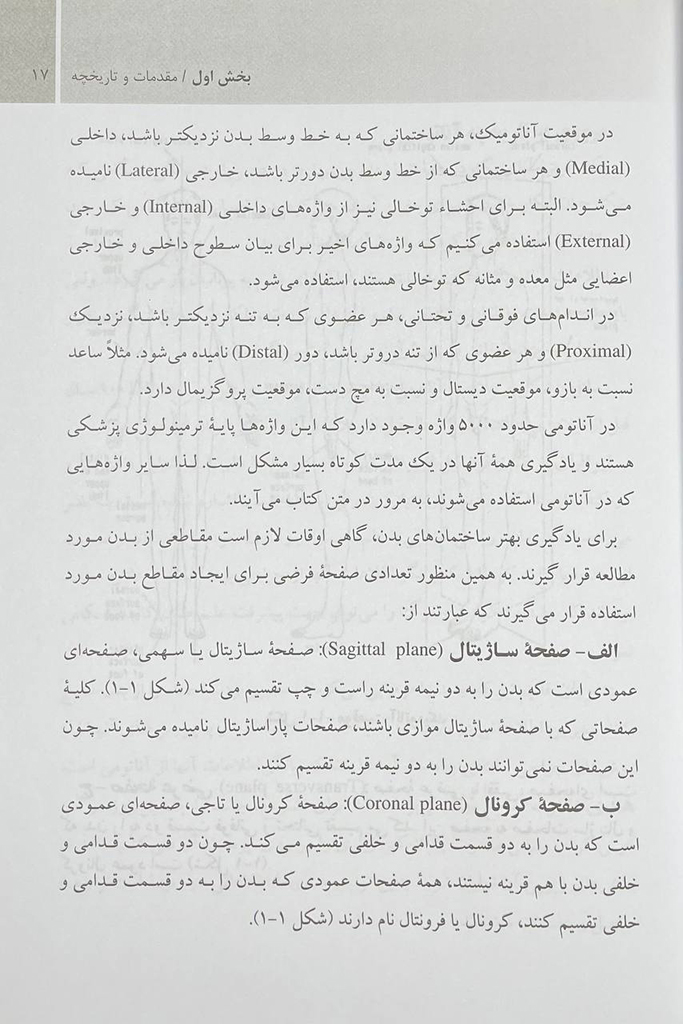 بخش اول / مقدمات و تاریخچه ۱۷
در موقعیت آناتومیک، هر ساختمانی که به خط وسط بدن نزدیکتر باشد، داخلی
(Medial) و هر ساختمانی که از خط وسط بدن دورتر باشد، خارجی (Lateral) نامیده
می‌شود. البته برای احشاء توخالی نیز از واژه‌های داخلی (Internal) و خارجی
(External) استفاده می‌کنیم که واژه‌های اخیر برای بیان سطوح داخلی و خارجی
اعضایی مثل معده و مثانه که توخالی هستند، استفاده می‌شود.
در اندام‌های فوقانی و تحتانی، هر عضوی که به تنه نزدیکتر باشد، نزدیک
(Proximal) و هر عضوی که از تنه دروتر باشد، دور (Distal) نامیده می‌شود. مثلاً ساعد
نسبت به بازو، موقعیت دیستال و نسبت به مچ دست، موقعیت پروگزیمال دارد.
در آناتومی حدود ۵۰۰۰ واژه وجود دارد که این واژه‌ها پایهٔ ترمینولوژی پزشکی
هستند و یادگیری همهٔ آنها در یک مدت کوتاه بسیار مشکل است. لذا سایر واژه‌هایی
که در آناتومی استفاده می‌شوند، به مرور در متن کتاب می‌آیند.
برای یادگیری بهتر ساختمان‌های بدن، گاهی اوقات لازم است مقاطعی از بدن مورد
مطالعه قرار گیرند. به همین منظور تعدادی صفحهٔ فرضی برای ایجاد مقاطع بدن مورد
استفاده قرار می‌گیرند که عبارتند از:
الف- صفحهٔ ساژیتال (Sagittal plane): صفحهٔ ساژیتال یا سهمی، صفحه‌ای
عمودی است که بدن را به دو نیمه قرینه راست و چپ تقسیم می‌کند (شکل ۱-۱). کلیهٔ
صفحاتی که با صفحهٔ ساژیتال موازی باشند، صفحات پاراساژیتال نامیده می‌شوند. چون
این صفحات نمی‌توانند بدن را به دو نیمه قرینه تقسیم کنند.
ب- صفحهٔ کرونال (Coronal plane): صفحهٔ کرونال یا تاجی، صفحه‌ای عمودی
است که بدن را به دو قسمت قدامی و خلفی تقسیم می‌کند. چون دو قسمت قدامی و
خلفی بدن با هم قرینه نیستند، همهٔ صفحات عمودی که بدن را به دو قسمت قدامی و
خلفی تقسیم کنند، کرونال یا فرونتال نام دارند (شکل ۱-۱).